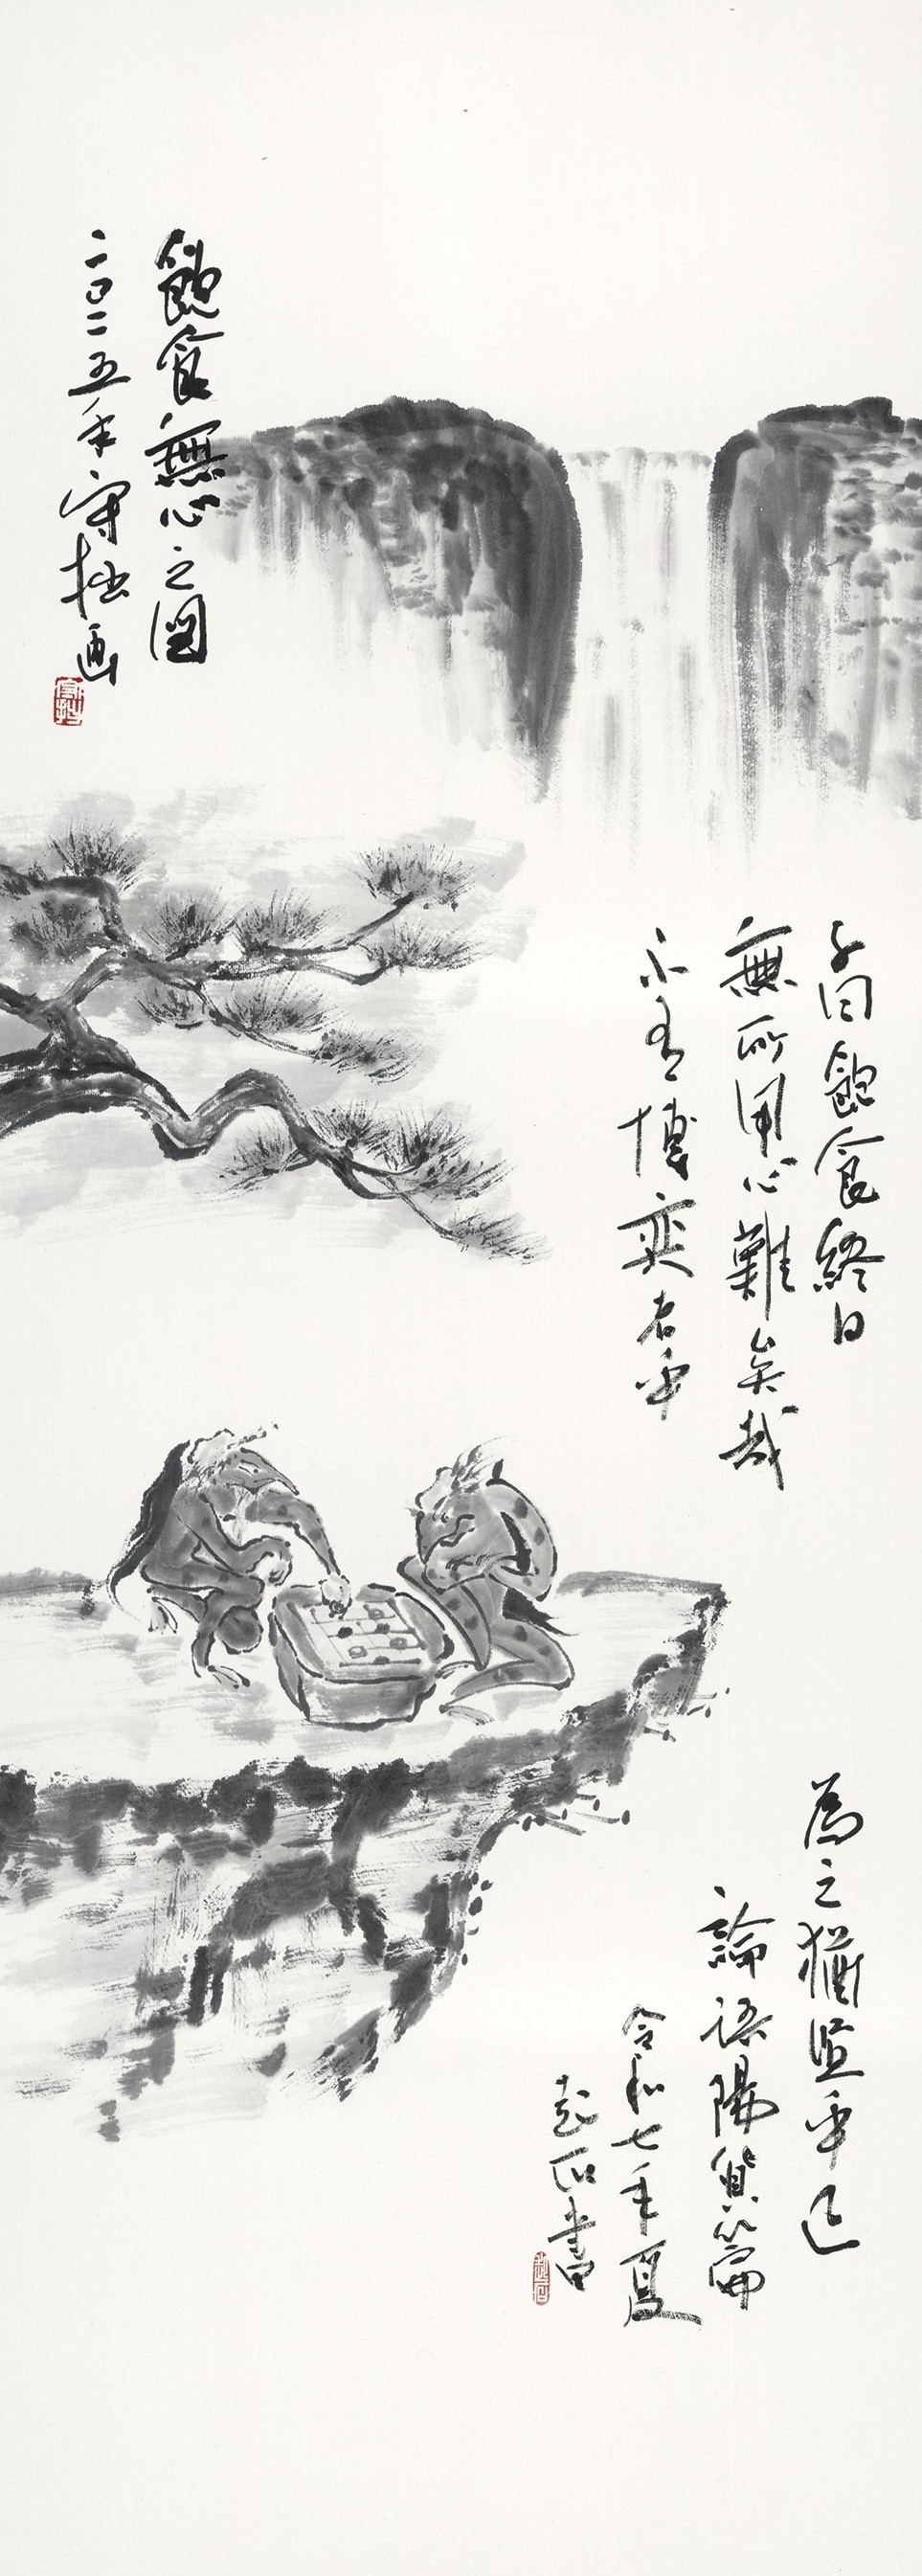 飽食無心之圖
二〇二五年守拙画
守拙
子曰飽食終日
無所用心難矣哉
不有博奕者乎
為之猶賢乎已
論語陽貨篇
令和七年夏
石書